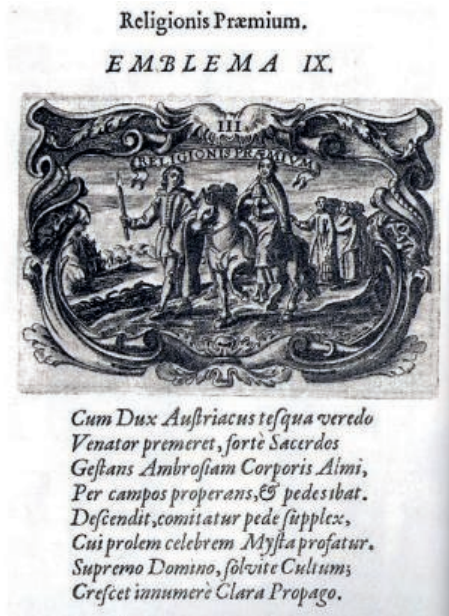 Religionis Præmium.
EMBLEMA IX.
III
RELIGIONIS PRÆMIVM
Cum Dux Auſtriacus teſqua veredo
Venator premeret, fortè Sacerdos
Geſtans Ambroſiam Corporis Almi,
Per campos properans, & pedes ibat.
Deſcendit, comitatur pede ſupplex,
Cui prolem celebrem Myſta profatur.
Supremo Domino, ſolvite Cultum;
Creſcet innumerè Clara Propago.